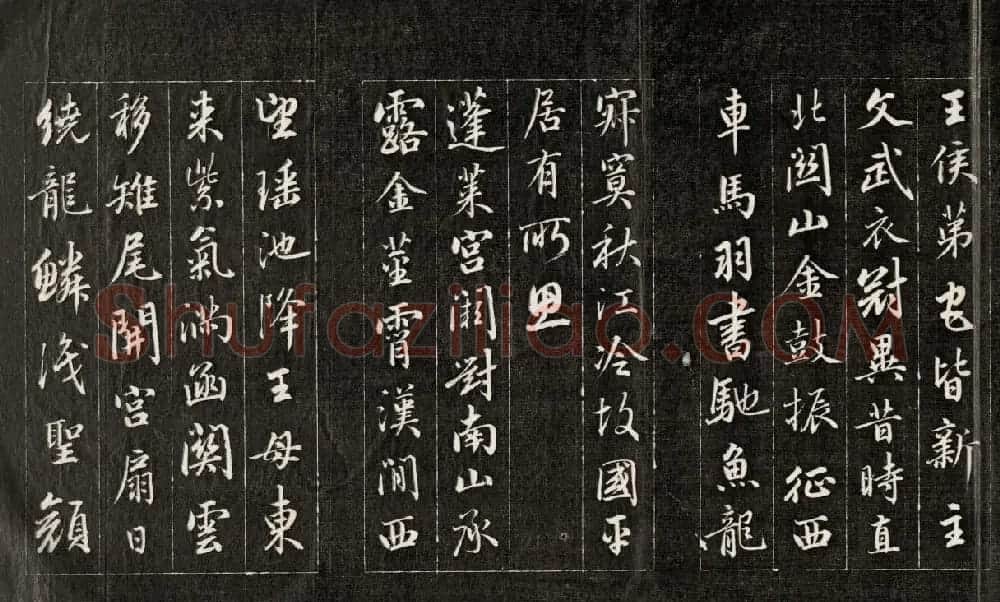 王侯第宅皆新主
文武衣冠異昔時直
北關山金鼓振征西
車馬羽書馳魚龍
寂寞秋江冷故國平
居有所思
蓬萊宮闕對南山承
露金莖霄漢間西
望瑤池降王母東
来紫氣滿函關雲
移雉尾開宮扇日
繞龍鱗識聖顏
Shufaziliao.COM